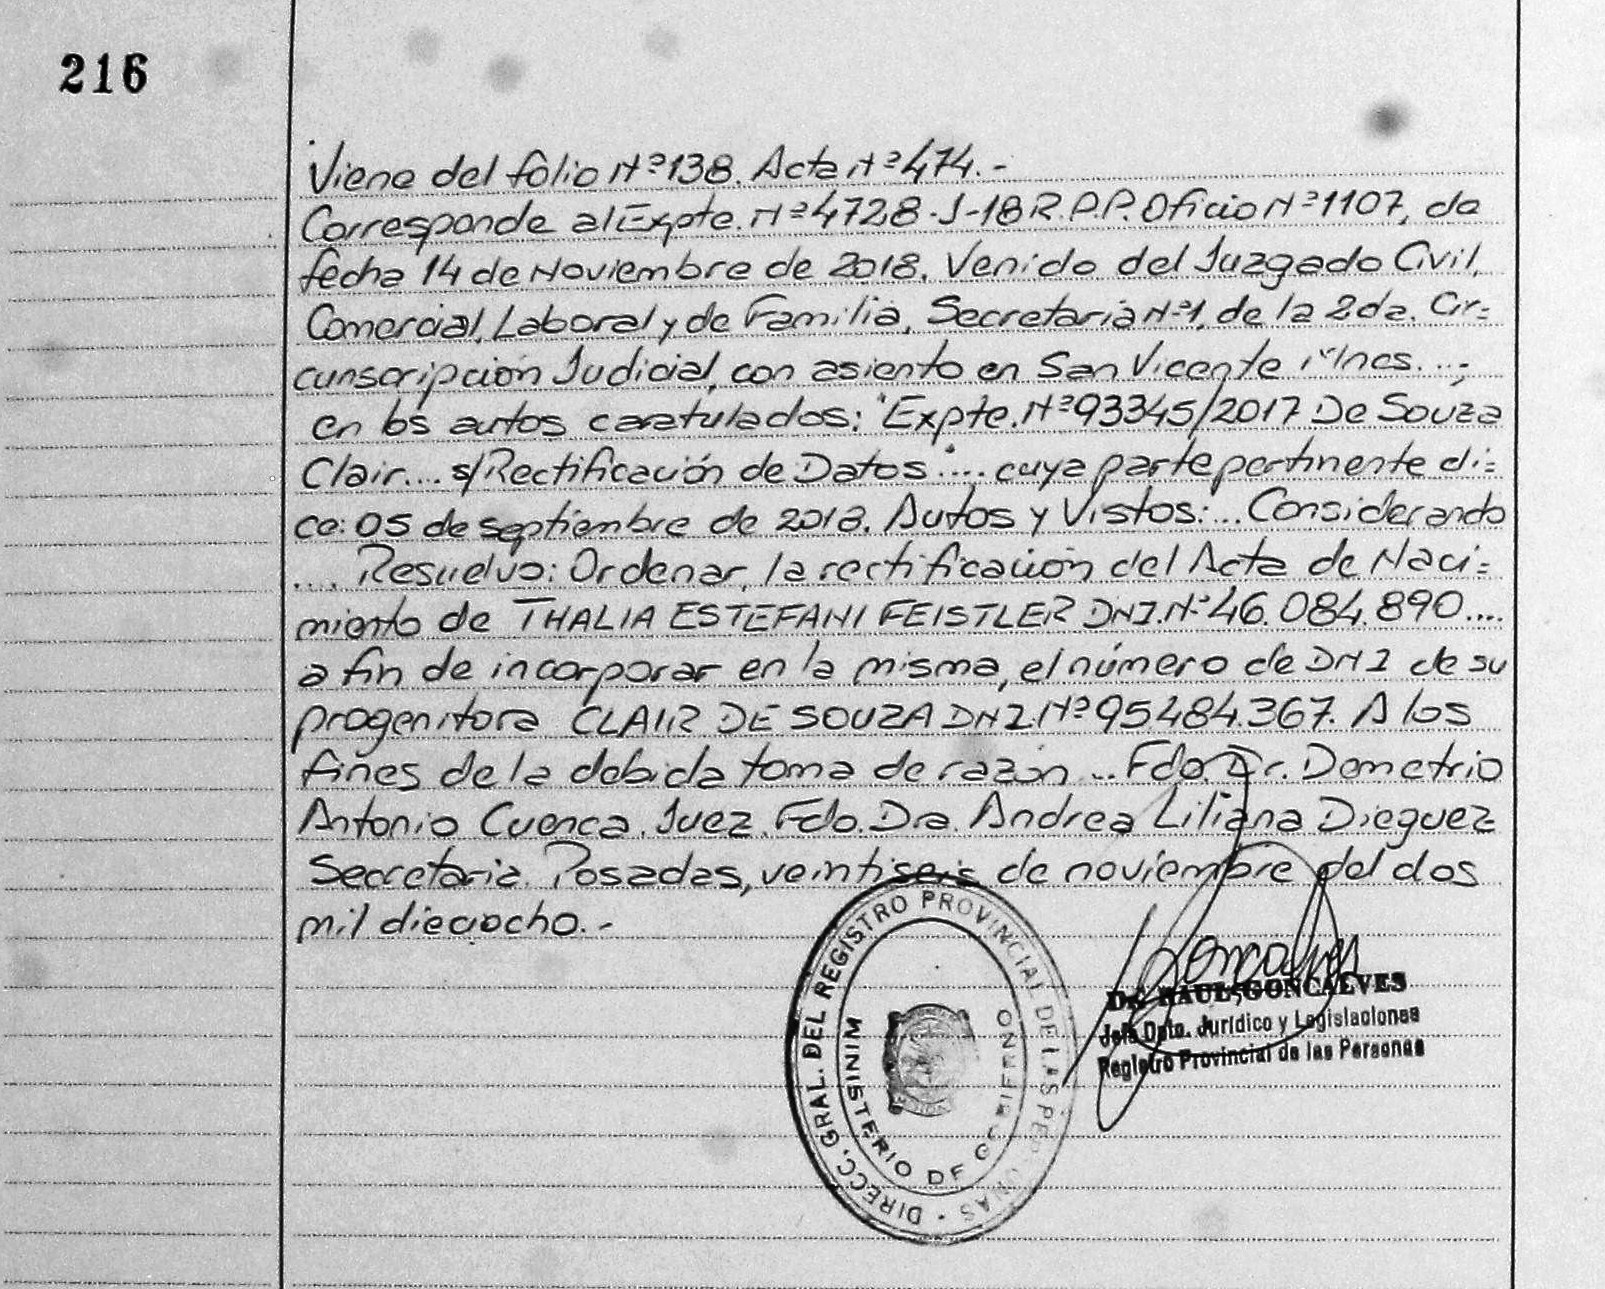 216
Viene del folio Nº138. Acta Nº474.-
Corresponde al Expte. Nº4728-J-18 R.P.P. Oficio Nº1107, de
fecha 14 de Noviembre de 2018. Venido del Juzgado Civil,
Comercial, Laboral y de Familia, Secretaria Nº1, de la 2da. Cir=
cunscripción Judicial, con asiento en San Vicente Mnes....
en los autos caratulados: "Expte. Nº93345/2017 De Souza
Clair.... s/Rectificación de Datos".... cuya parte pertinente di=
ce: 05 de septiembre de 2018. Autos y Vistos:... Considerando
.... Resuelvo: Ordenar, la rectificación del Acta de Naci=
miento de THALIA ESTEFANI FEISTLER DNI.Nº46.084.890....
a fin de incorporar en la misma, el número de DNI de su
progenitora CLAIR DE SOUZA DNI.Nº95484.367. A los
fines de la debida toma de razón... Fdo. Dr. Demetrio
Antonio Cuenca. Juez. Fdo. Dra. Andrea Liliana Dieguez
Secretaria. Posadas, veintiseis de noviembre del dos
mil dieciocho.-
DIRECC. GRAL. DEL REGISTRO PROVINCIAL DE LAS PERSONAS
MINISTERIO DE GOBIERNO
Goncalves
Dr. RAUL GONCALVES
Jefe Dpto. Jurídico y Legislaciones
Registro Provincial de las Personas